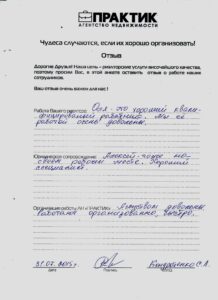 ПРАКТИК
АГЕНТСТВО НЕДВИЖИМОСТИ
Чудеса случаются, если их хорошо организовать!
Отзыв
Дорогие Друзья! Наша цель - риэлторские услуги высочайшего качества,
поэтому просим Вас, в этой анкете оставить отзыв о работе наших
сотрудников.
Ваш отзыв очень важен для нас!
Работа Вашего риэлтора: Оля это хороший квали-
фицированный работник. Мы её
работой очень довольны.
Юридическое сопровождение: Алексей тоже на
своём рабочем месте. Хороший
специалист.
Организация работы АН «ПРАКТИК»: довольны
работали организованно, быстро.
31.07.2015г.
Дата
Подпись